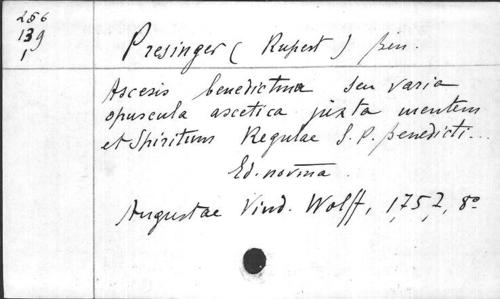 256
139
1
Presinger (Rupert) ben.
Ascesis benedictina seu varia
opuscula ascetica juxta mentem
et Spiritum Regulae S. P. Benedicti...
Ed. novma.
Augustae Vind. Wolff, 1757, 8°